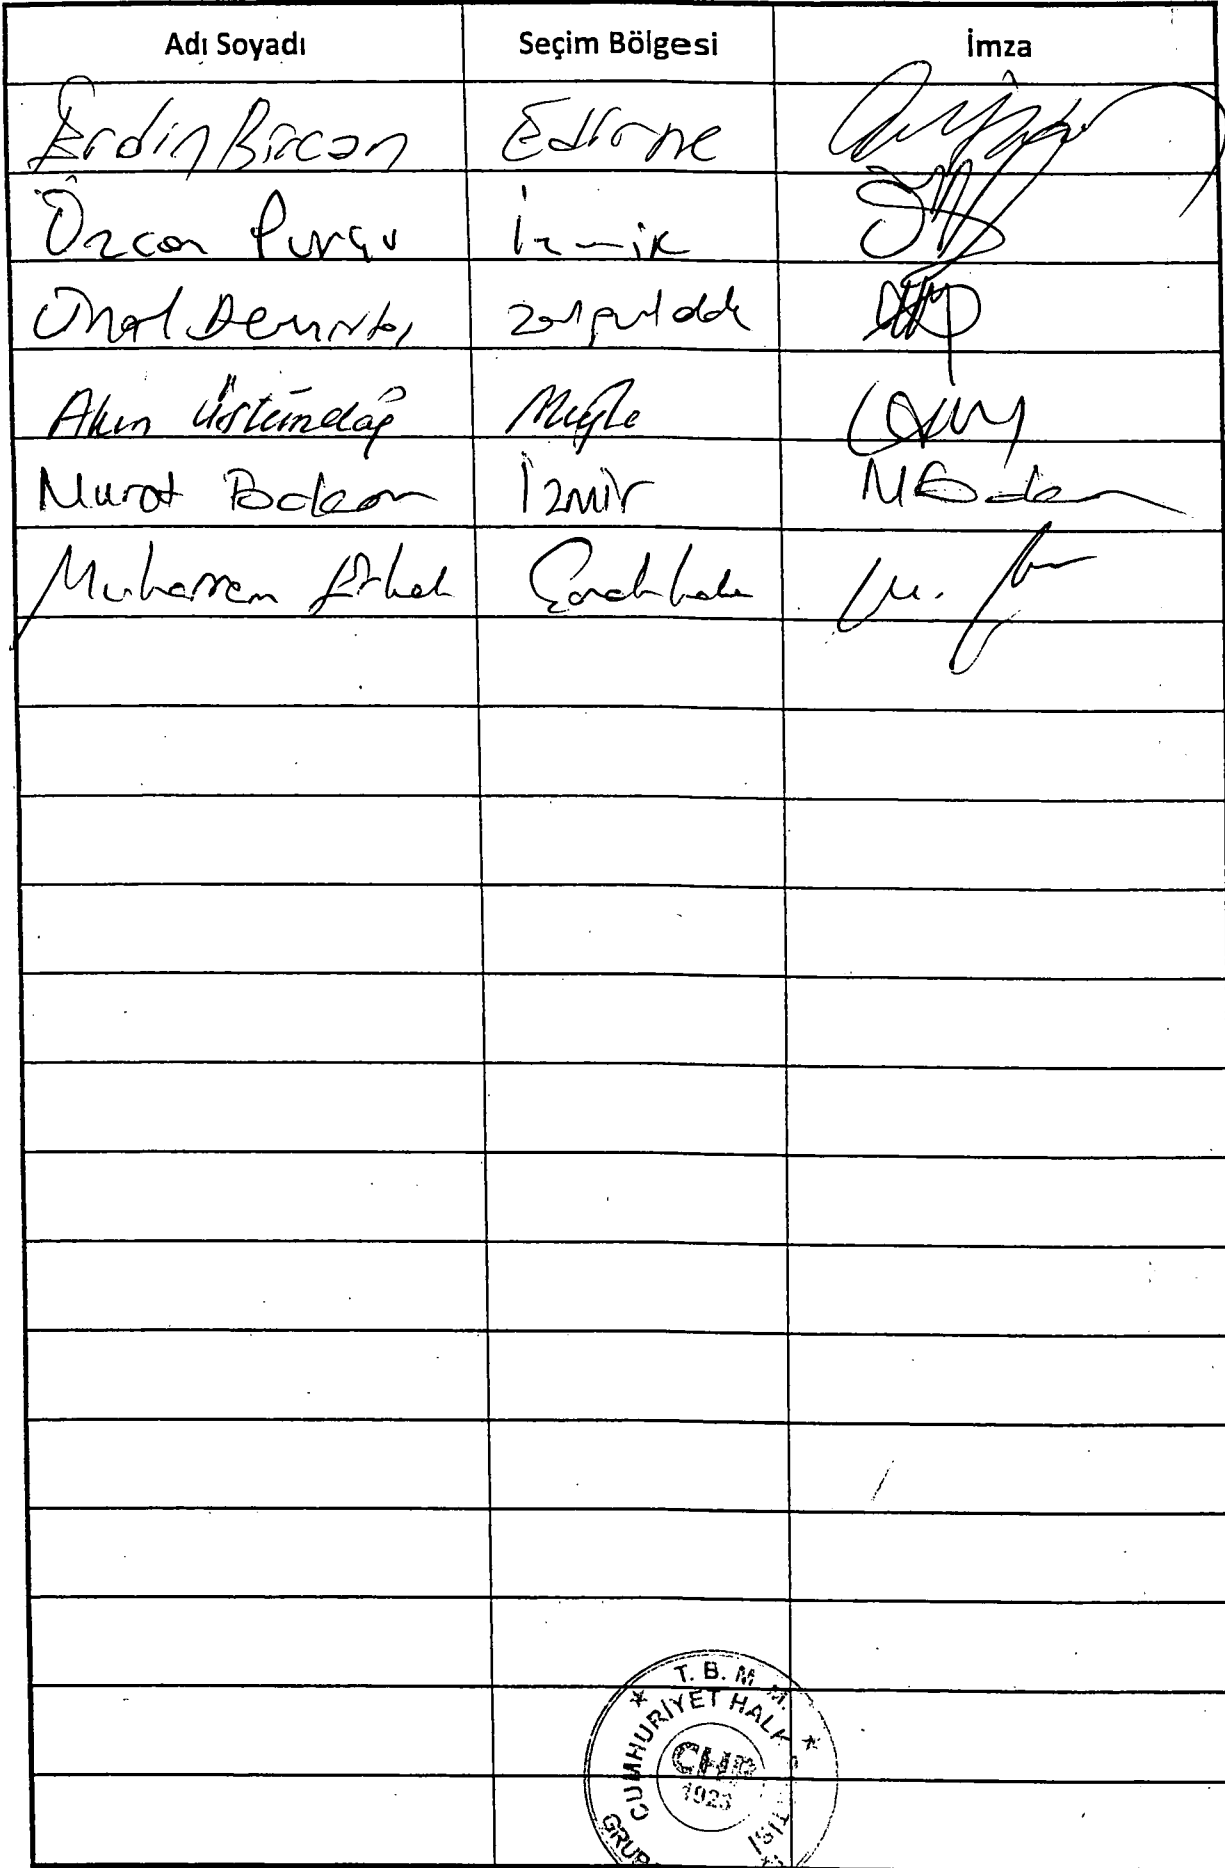 Adı Soyadı Seçim Bölgesi İmza
Erdin Bircan Edirne
Özcan Purçu İzmir
Ünal Demirtaş Zonguldak
Akın Üstündağ Muğla
Murat Bakan İzmir
Muharrem Erkek Çanakkale
T. B. M. M.
CUMHURİYET HALK
CHP
1923
GRUP